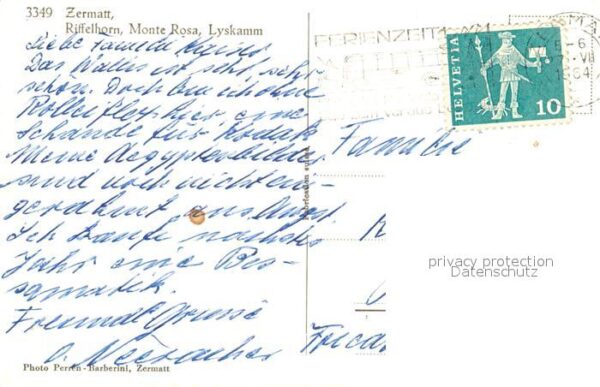 3349 Zermatt,
Riffelhorn, Monte Rosa, Lyskamm
Liebe Familie
Das Wallis ist sehr, sehr
schön. Doch bin ich ohne
Rolleiflex hier, eine
Schande für Kodak
Meine Aegyptenbilder
sind noch nicht ein-
gerahmt aus
Ich kaufe nächstes
Jahr eine Bes-
samatik.
Freundl. Grüsse
Photo Perren-Barberini, Zermatt
FERIENZEIT
5-6
1964
HELVETIA
10
Familie
privacy protection
Datenschutz